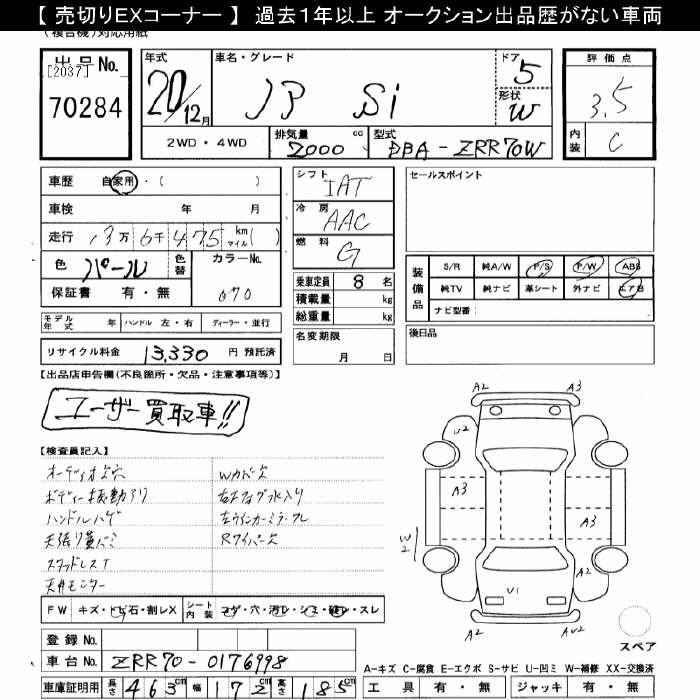 【 売切りEXコーナー 】 過去１年以上 オークション出品歴がない車両
(複合機)対応用紙
出品No.
[2037]
70284
年式
20/12月
車名・グレード
ノア Si
ドア 5
形状 W
評価点
3.5
内装 C
2WD・4WD
排気量 2000 cc
型式 DBA-ZRR70W
車歴 自家用・( )
車検 年 月
走行 13万6千475 km マイル( )
色 パール 色替
カラーNo. 070
保証書 有・無
シフト IAT
冷房 AAC
燃料 G
乗車定員 8 名
積載量 kg
総重量 kg
名変期限
月 日
セールスポイント
装備品
S/R 純A/W P/S P/W ABS
純TV 純ナビ 革シート 外ナビ エアB
ナビ型番:
後日品
モデル年式 年 ハンドル 左・右 ディーラー・並行
リサイクル料金 13,330 円 預託済
【出品店申告欄(不良箇所・欠品・注意事項等)】
ユーザー買取車!!
【検査員記入】
オーディオ欠穴
ボディー振動アリ
ハンドルハゲ
天張り黄バミ
スタッドレスT
天井モニター
Wカバー欠
左ウインカーミラーワレ
Rワイパー欠
FW キズ・トビ石・割レX
シート内装 コゲ・穴・汚レ・シミ・破レ・スレ
登録No.
車台No. ZRR70-0176998
車庫証明用 長さ 463cm 幅 172cm 高さ 185cm
A2 A3
U2
A3 A3
W2
A2
U1
A2 AU2
スペア
A-キズ C-腐食 E-エクボ S-サビ U-凹ミ W-補修 XX-交換済
工具 有・無 ジャッキ 有・無